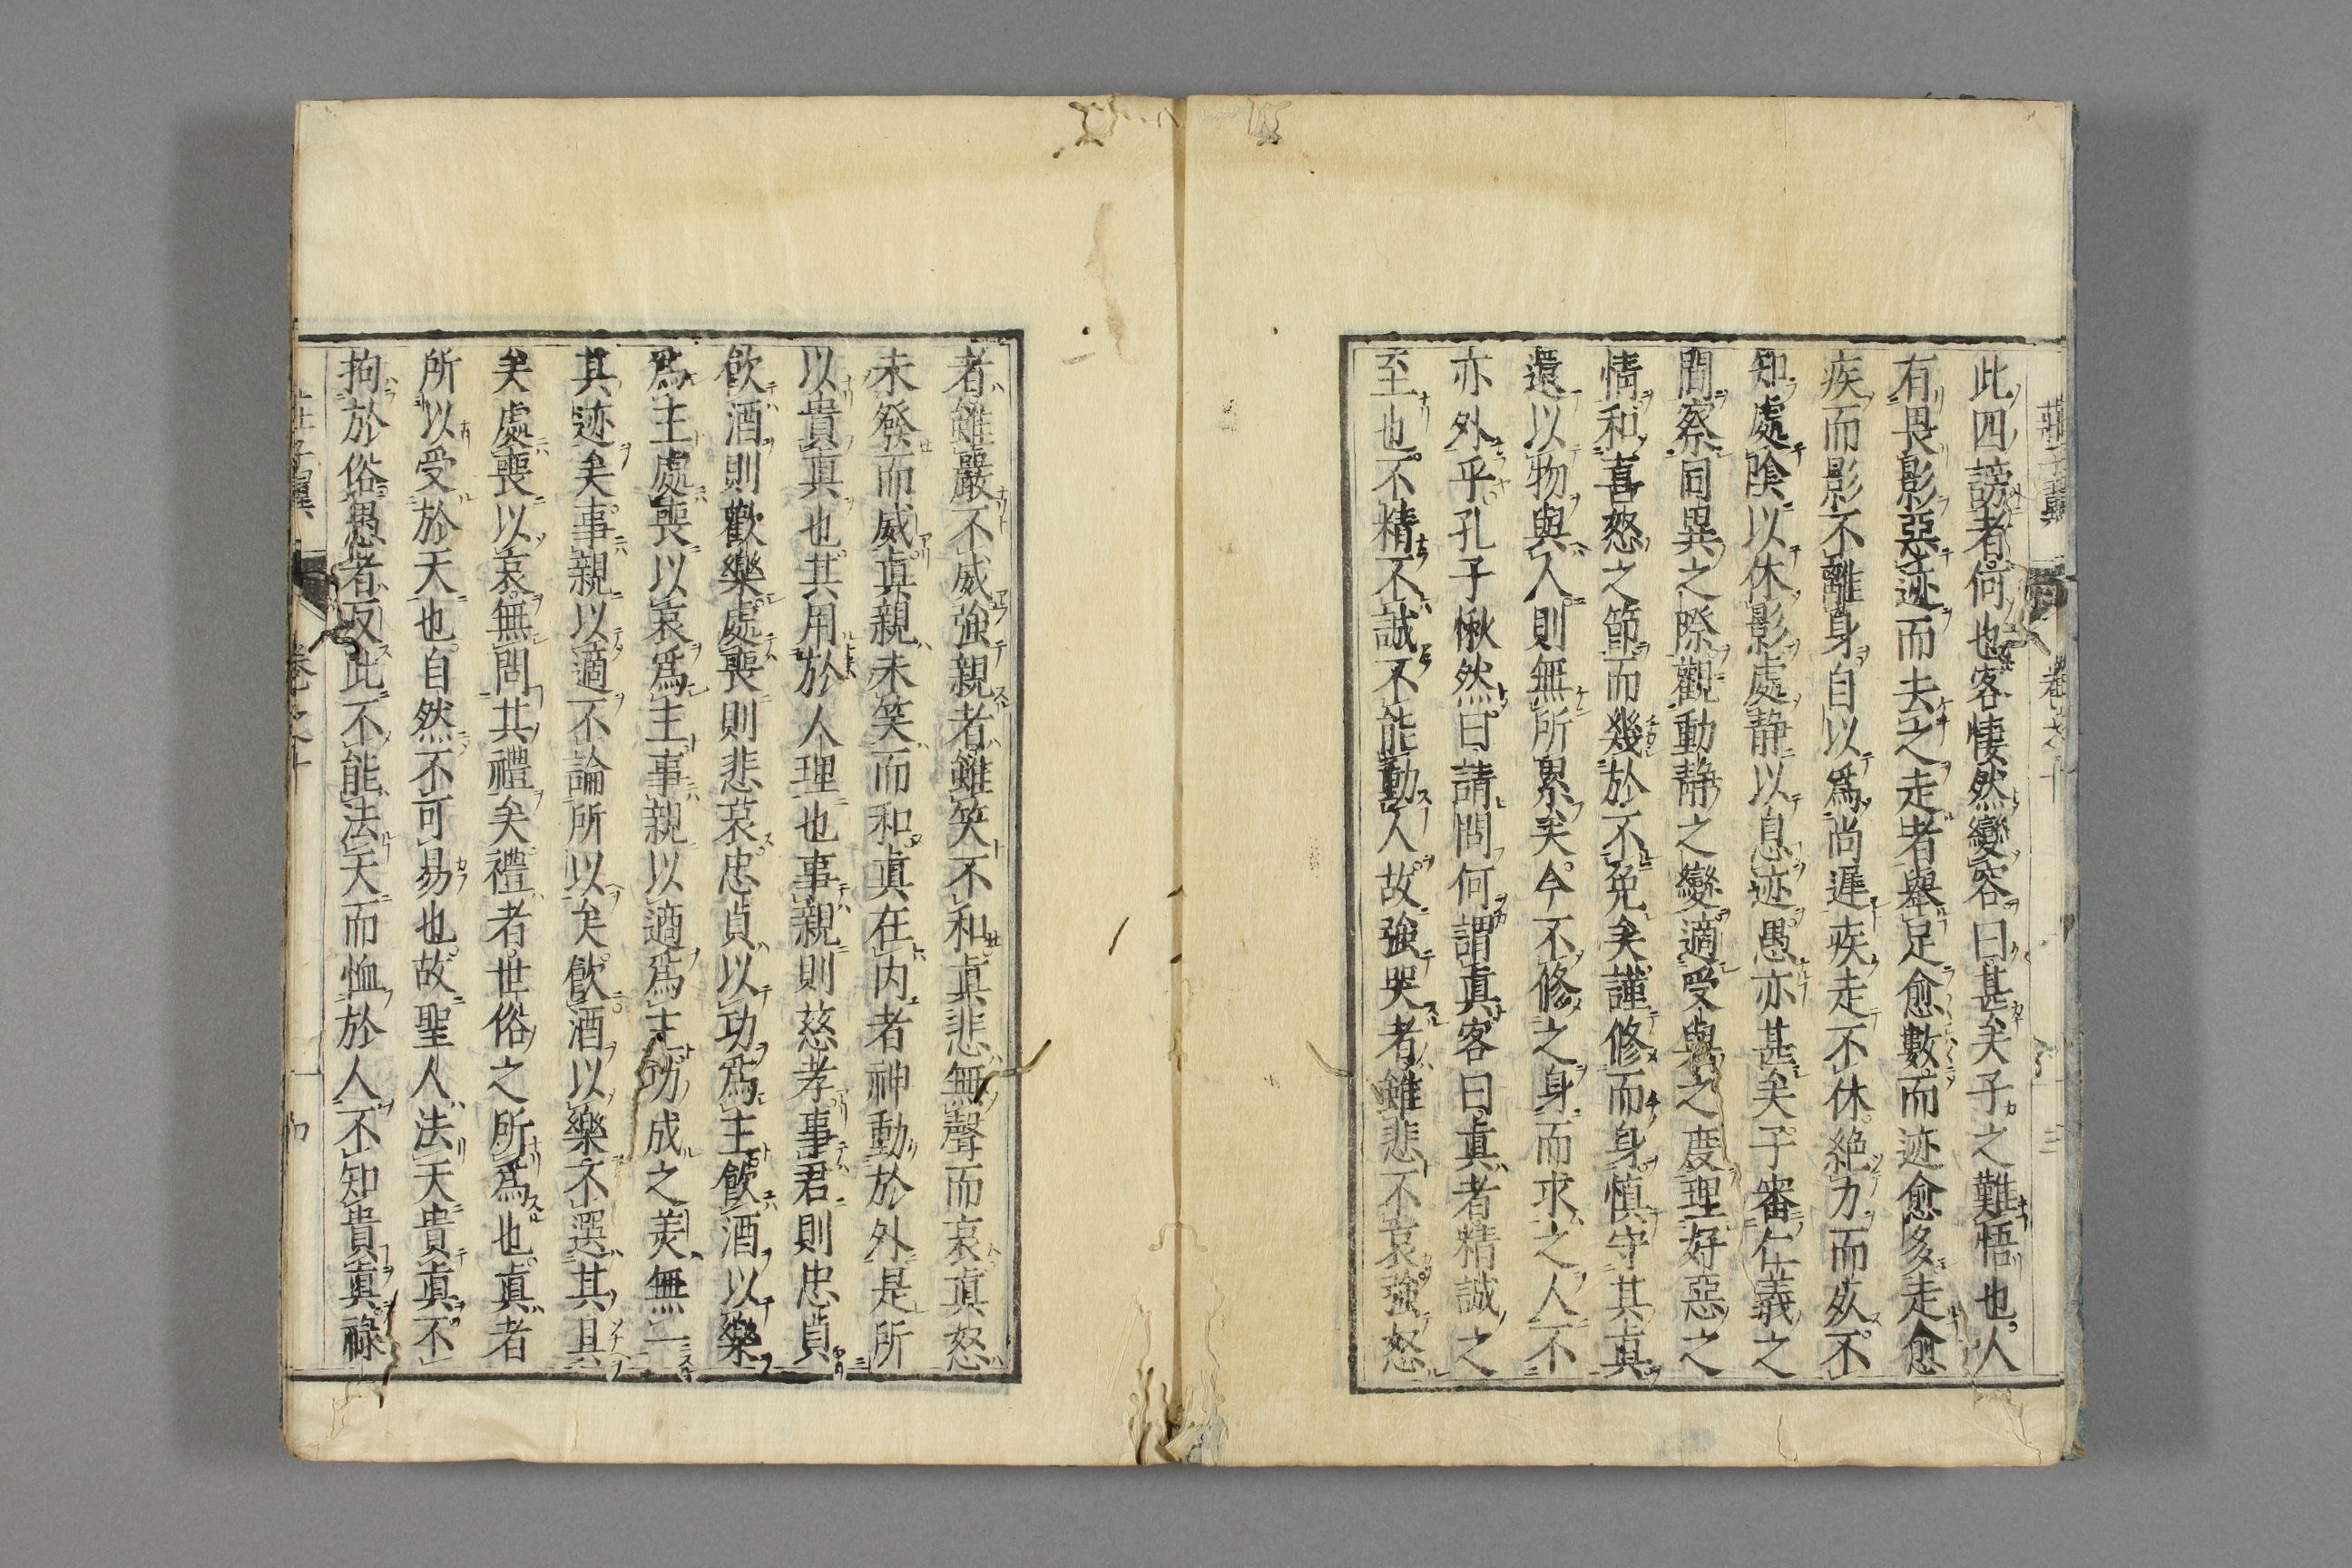 莊子翼 卷之十 三
此四謗者何也客悽然變容曰甚矣子之難悟也人
有畏影惡迹而去之走者舉足愈數而迹愈多走愈
疾而影不離身自以爲尚遲疾走不休絶力而死不
知處陰以休影處静以息迹愚亦甚矣子審仁義之
間察同異之際觀動静之變適受與之度理好惡之
情和喜怒之節而幾於不免矣謹修而身慎守其真
還以物與人則無所累矣今不修之身而求之人不
亦外乎孔子愀然曰請問何謂真客曰真者精誠之
至也不精不誠不能動人故強哭者雖悲不哀強怒
者雖嚴不威強親者雖笑不和真悲無聲而哀真怒
未發而威真親未笑而和真在内者神動於外是所
以貴真也其用於人理也事親則慈孝事君則忠貞
飲酒則歡樂處喪則悲哀忠貞以功爲主飲酒以樂
爲主處喪以哀爲主事親以適爲主功成之美無一
其迹矣事親以適不論所以矣飲酒以樂不選其具
矣處喪以哀無問其禮矣禮者世俗之所爲也真者
所以受於天也自然不可易也故聖人法天貴真不
拘於俗愚者反此不能法天而恤於人不知貴真祿
莊子翼 卷之十